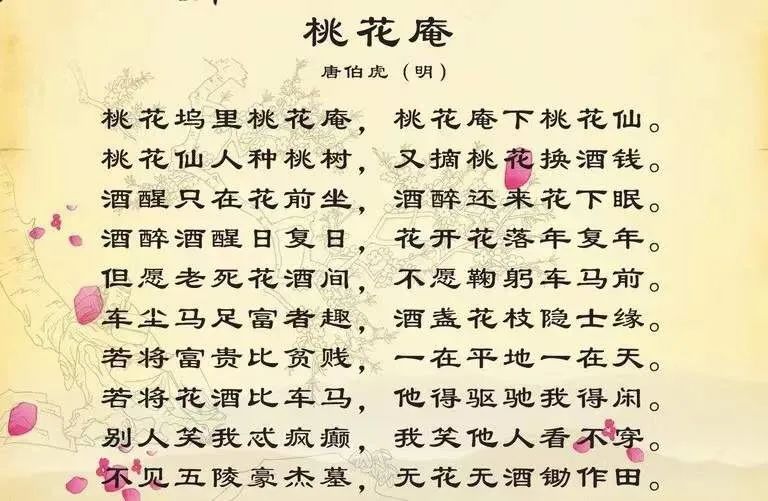 桃花庵
唐伯虎（明）
桃花坞里桃花庵，桃花庵下桃花仙。
桃花仙人种桃树，又摘桃花换酒钱。
酒醒只在花前坐，酒醉还来花下眠。
酒醉酒醒日复日，花开花落年复年。
但愿老死花酒间，不愿鞠躬车马前。
车尘马足富者趣，酒盏花枝隐士缘。
若将富贵比贫贱，一在平地一在天。
若将花酒比车马，他得驱驰我得闲。
别人笑我忒疯癫，我笑他人看不穿。
不见五陵豪杰墓，无花无酒锄作田。